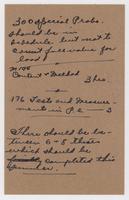 300 Special Probs.
should be in
schedule but not to
count full value for
load
Content & Method
3 hrs.
176 Tests and Measure-
ments in P.E. — 3
There should be be-
tween 6-8 theses
which should be
completed this
summer.